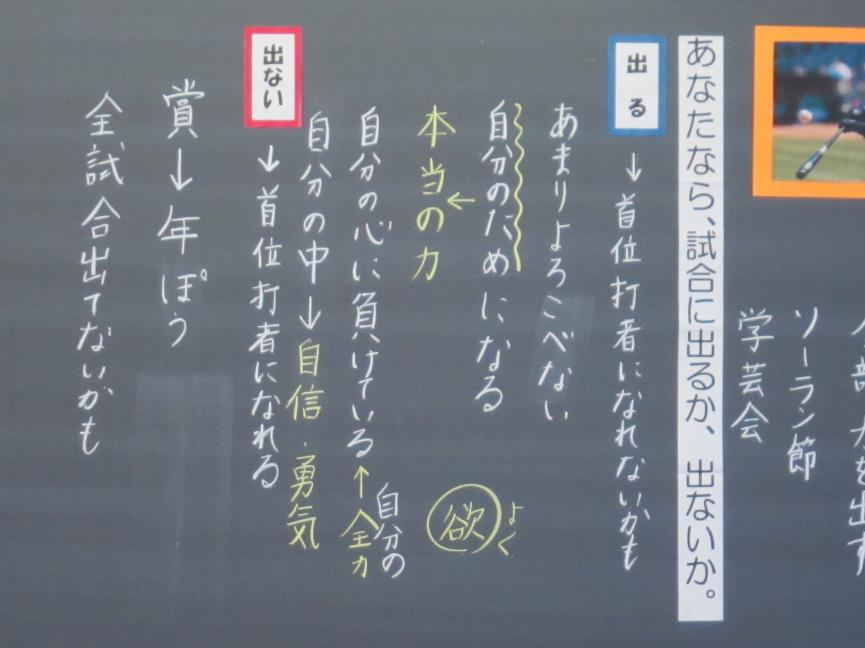 全部力を出す
ソーラン節
学芸会
あなたなら、試合に出るか、出ないか。
出る
↓首位打者になれないかも
あまりよろこべない
自分のためになる
欲
よく
本当の力
←
自分の心に負けている↑全力
自分の
自分の中↓自信・勇気
出ない
↓首位打者になれる
賞↓年ぽう
全試合出てないかも